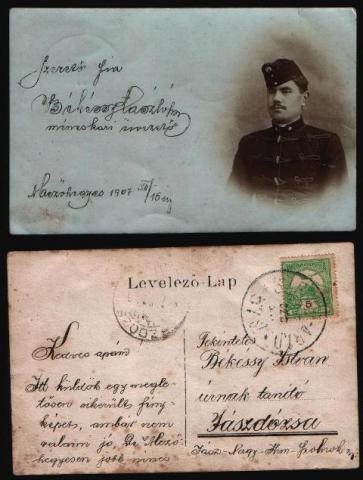 Szerető fia
Békéssy László
műneskari őrvezető
Mezőhegyes 1907 XII/16 én
Levelező-Lap
Kedves apám
Itt küldök egy megle-
tősen sikerült fény-
képet, ambár nem
valami jó, De Mező-
hegyesen jobb nincs
Tekintetes
Békéssy István
úrnak tanító
Jászdózsa
Jász-Nagy-Kun-Szolnok